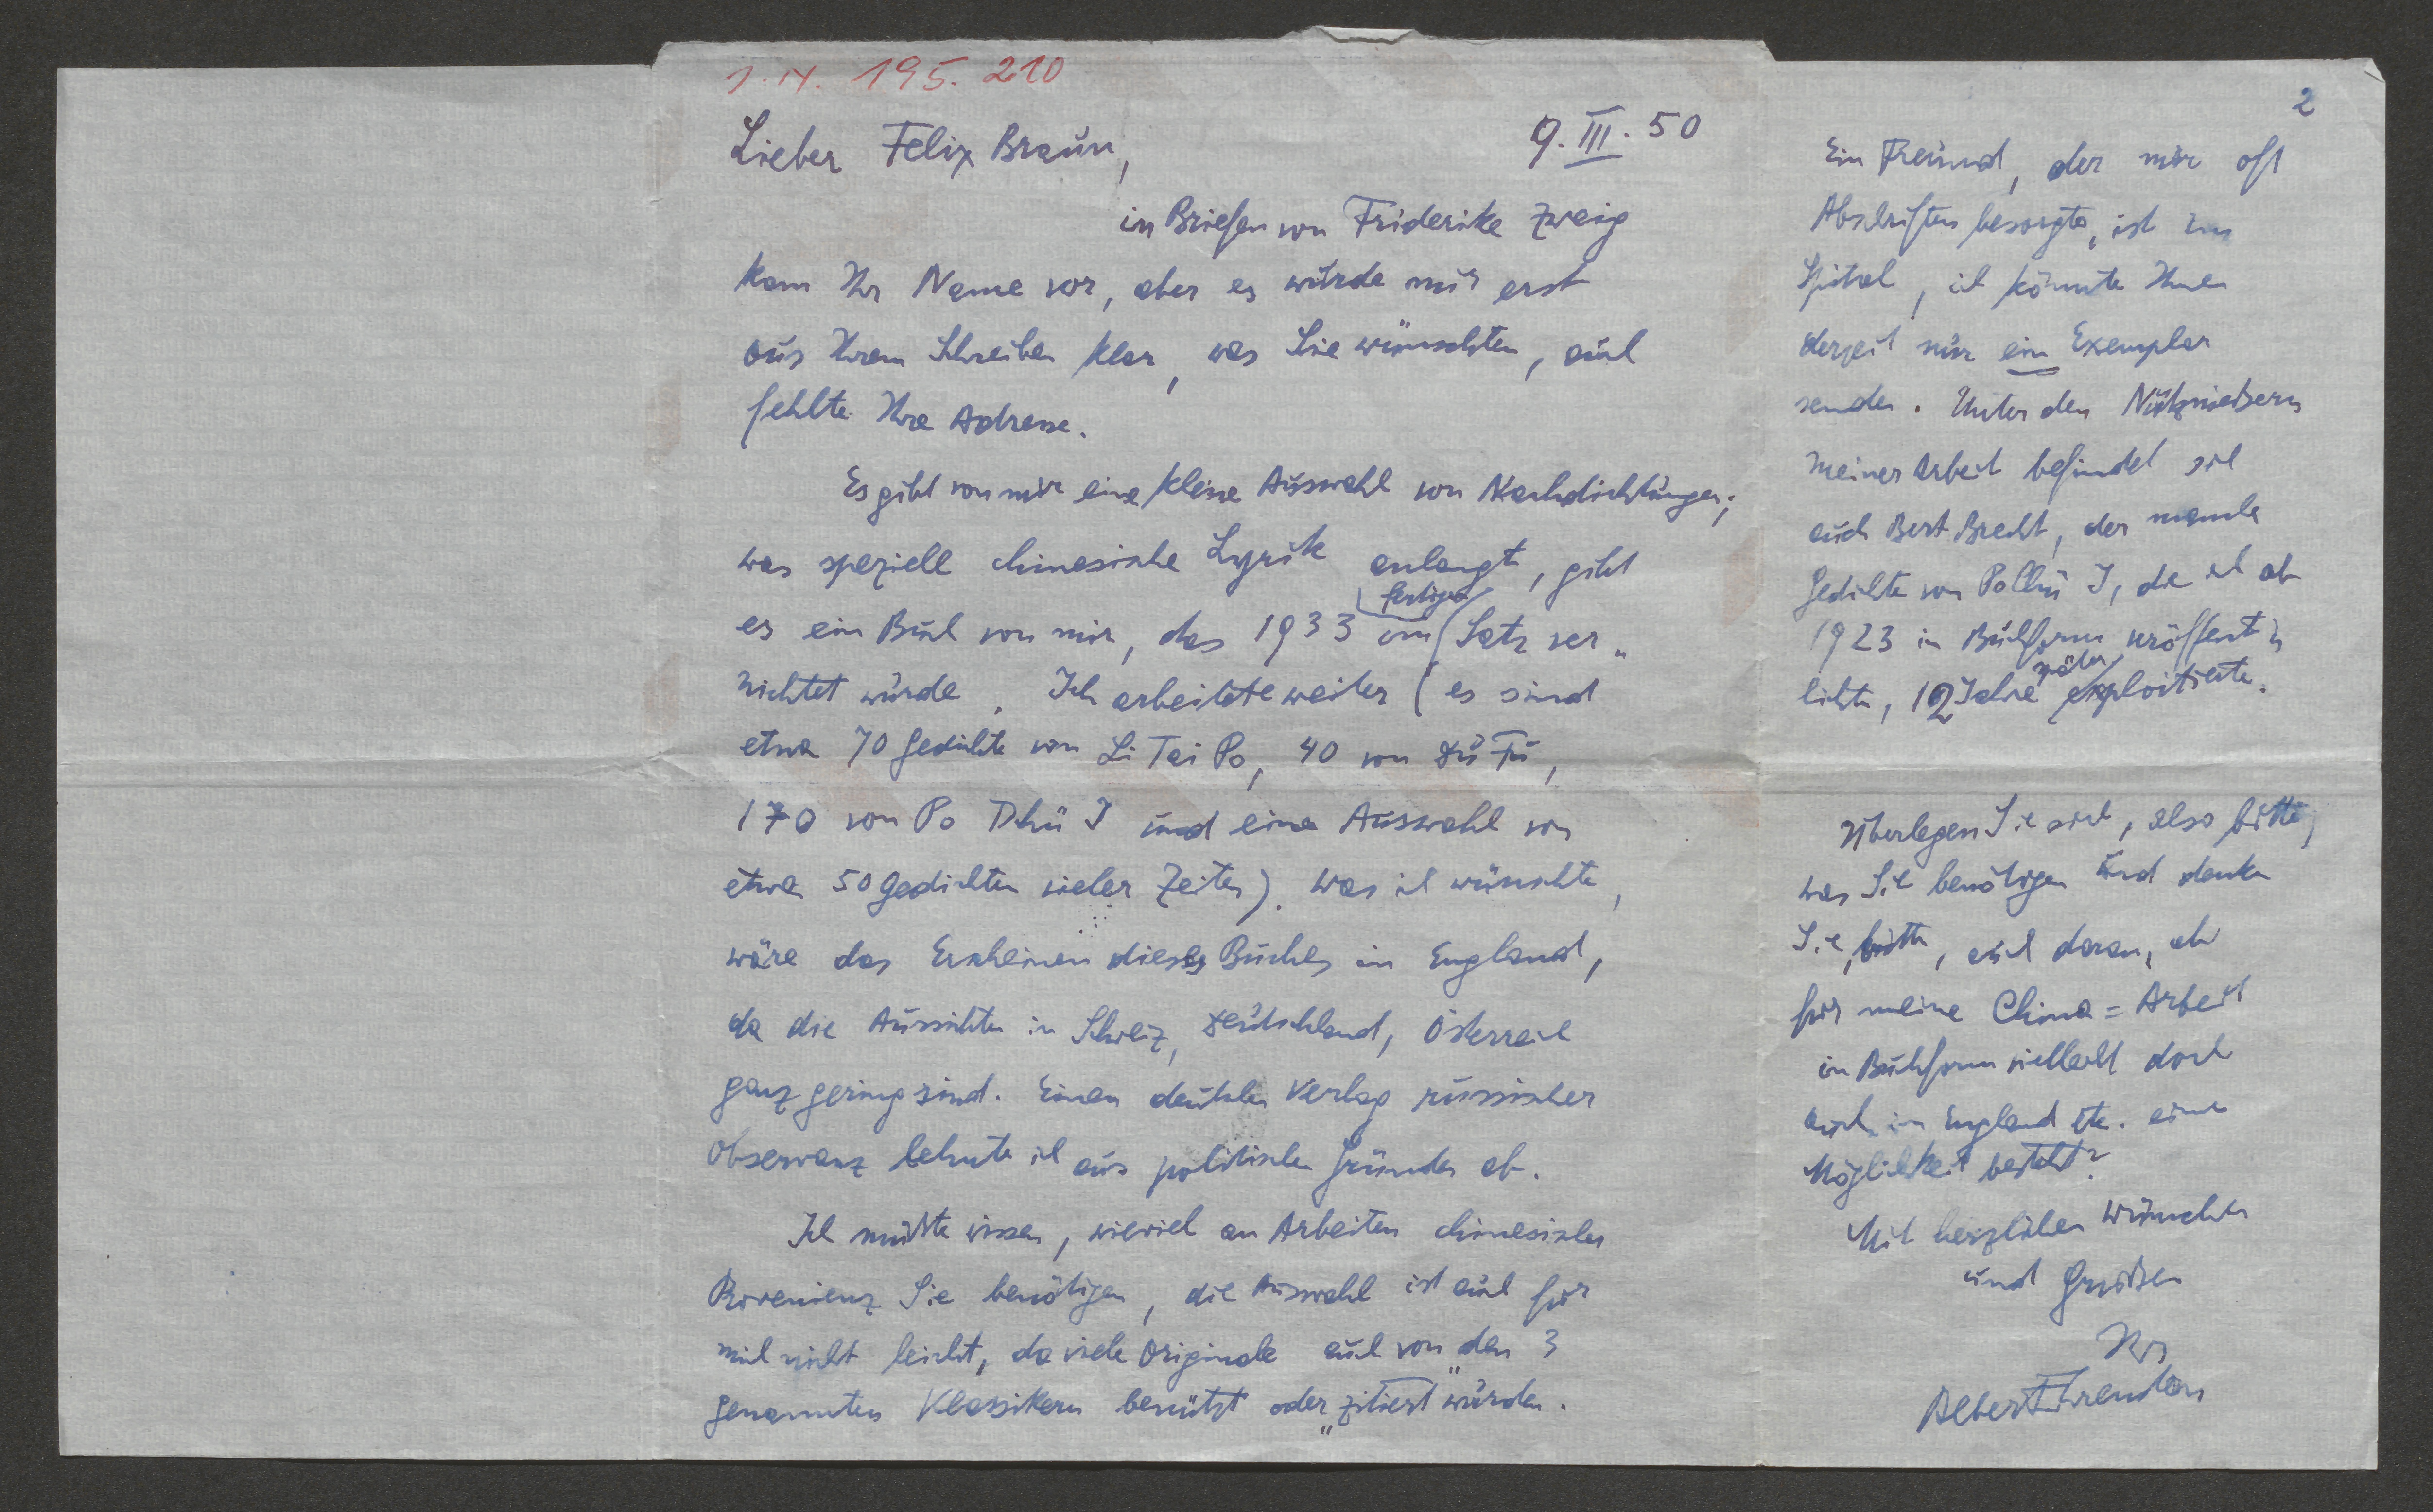 I.N. 195.210
9.III.50
Lieber Felix Braun,
in Briefen von Friderike Zweig
kam Ihr Name vor, aber es wurde mir erst
aus Ihrem Schreiben klar, was Sie wünschten, auch
fehlte Ihre Adresse.
Es gibt von mir eine kleine Auswahl von Nachdichtungen;
was speziell chinesische Lyrik anlangt, gibt
es ein Buch von mir, das 1933 im fertigen Satz ver-
nichtet wurde. Ich arbeitete weiter (es sind
etwa 70 Gedichte von Li Tai Po, 40 von Du Fu,
170 von Po Dhü I und eine Auswahl von
etwa 50 Gedichten vieler Zeiten). Was ich wünschte,
wäre das Erscheinen dieses Buches in England,
da die Aussichten in Schweiz, Deutschland, Österreich
ganz gering sind. Einen deutschen Verlag russischer
Observanz lehnte ich aus politischen Gründen ab.
Ich müßte wissen, wieviel an Arbeiten chinesischer
Provenienz Sie benötigen, die Auswahl ist auch für
mich nicht leicht, da viele Originale auch von den 3
genannten Klassikern benützt oder "zitiert" wurden.
2
Ein Freund, der mir oft
Abschriften besorgte, ist im
Spital, ich könnte Ihnen
derzeit nur ein Exemplar
senden. Unter den Nutznießern
meiner Arbeit befindet sich
auch Bert Brecht, der manche
Gedichte von Po Chü I, die ich ab
1923 in Buchform veröffent-
lichte, 12 Jahre später exploitierte.
Überlegen Sie sich, also bitte,
was Sie benötigen und denken
Sie, bitte, auch daran, ob
für meine China=Arbeit
in Buchform vielleicht doch
auch in England etc. eine
Möglichkeit besteht?
Mit herzlichen Wünschen
und Grüßen
Ihr
Albert Ehrenstein